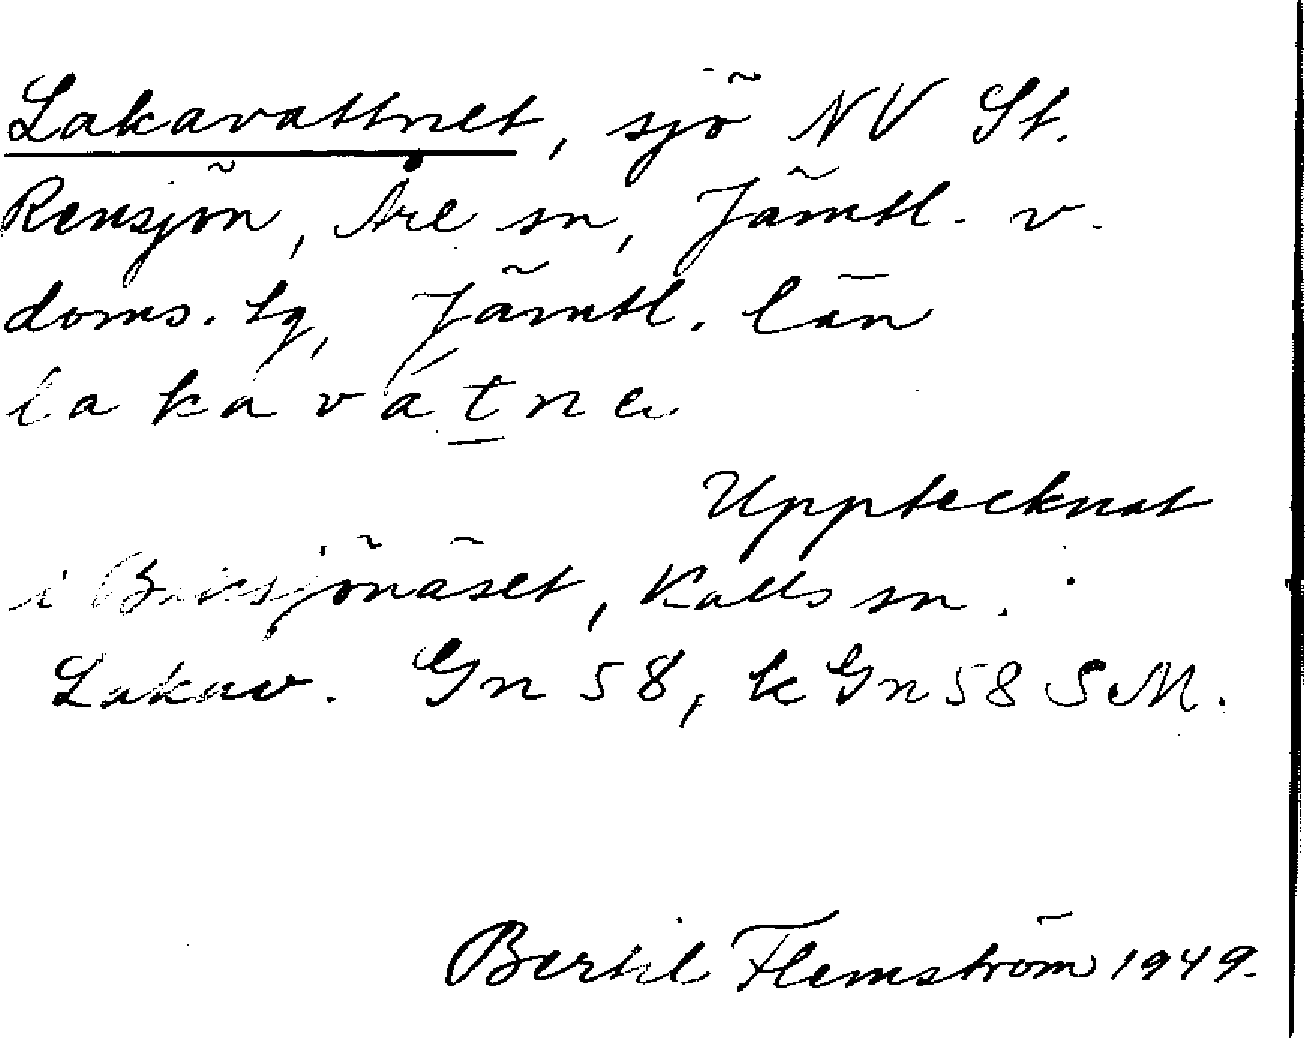 Lakavattnet, sjö NV St.
Rensjön, Åre sn, Jämtl. v.
doms. sg, Jämtl. län
lakavátna
Upptecknat
i Baksjönäset, Kalls sn.
Lakav. Gn 58, k Gn 58 SM.
Bertil Flemström 1949.